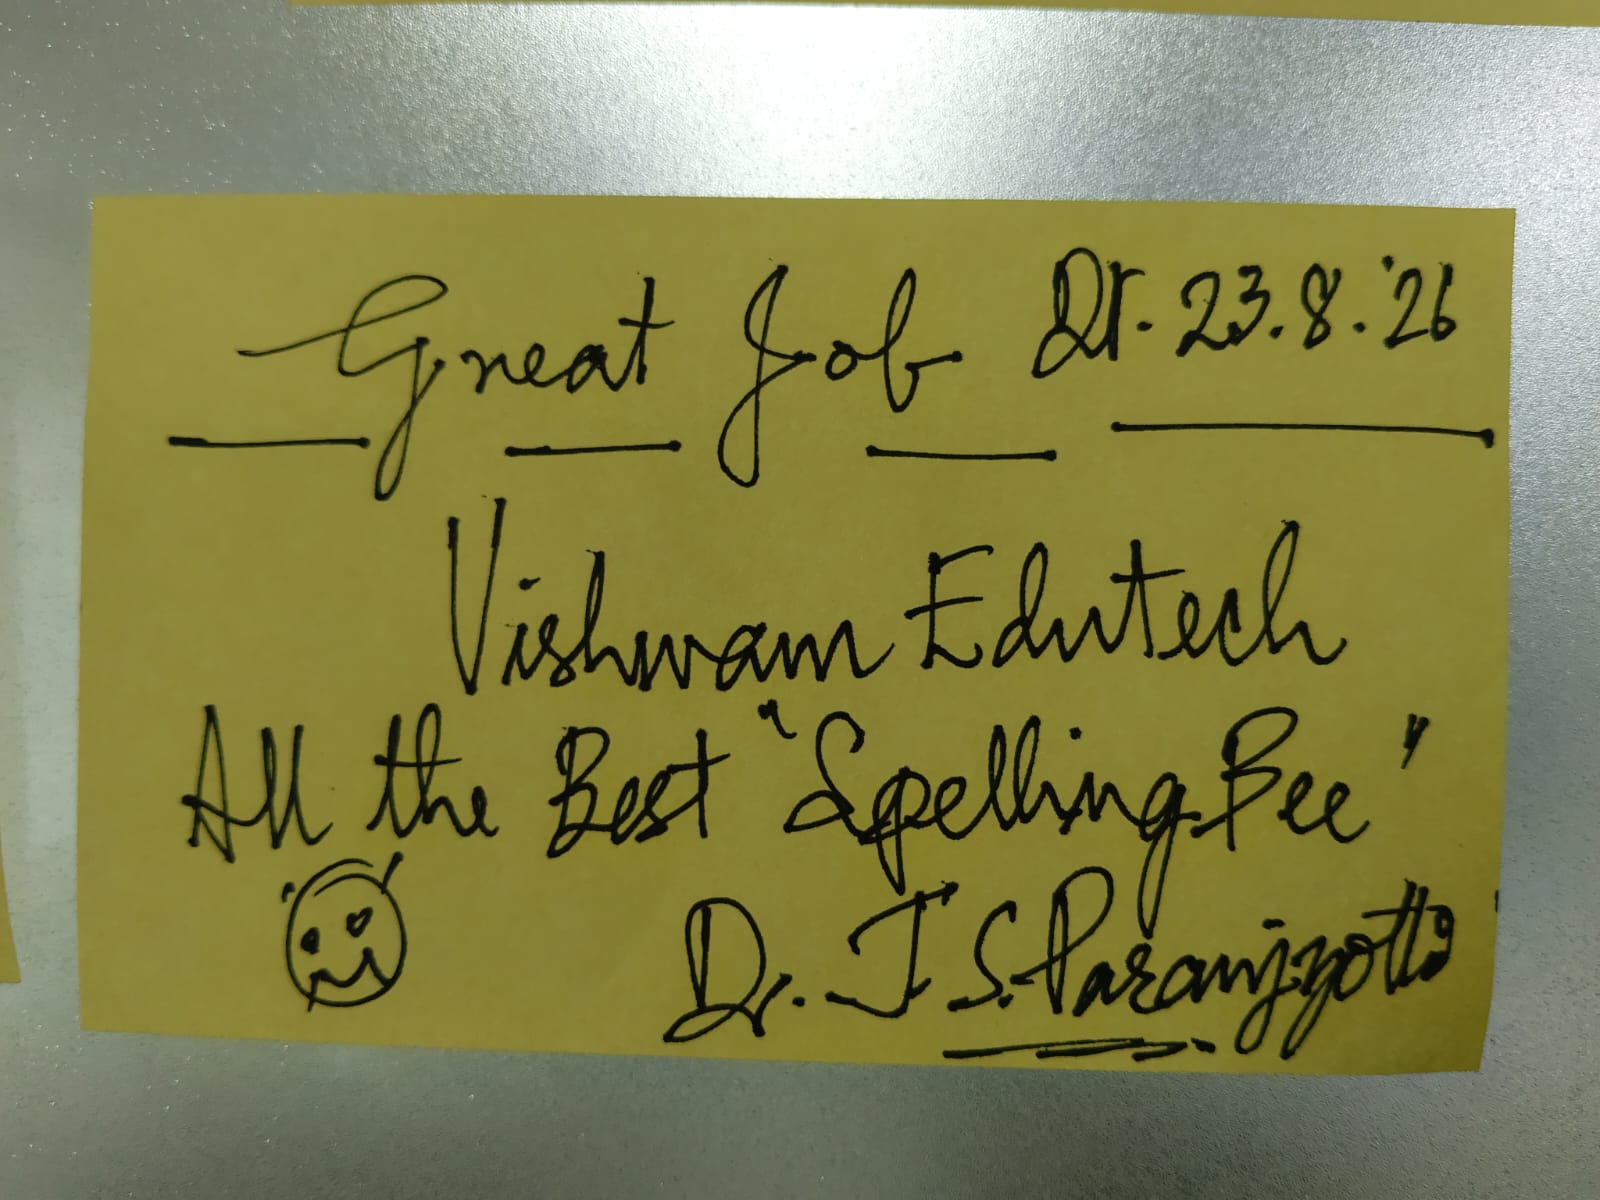 Great Job Dt. 23.8.'26
Vishwam Edutech
All the Best "Spelling Bee"
Dr. J S. Paranjyothi